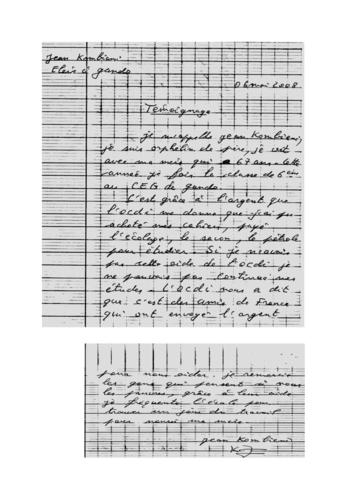 Jean Kombieni
Elève à gando
06 mai 2008
Témoignage
je m'appelle jean Kombieni,
je suis orphelin de père, je vit
avec ma mère qui a 67 ans. cette
année je fais la classe de 6ème
au CEG de gando.
C'est grâce à l'argent que
l'ocdi me donne que j'ai pu
acheté mes cahiers, payé
l'écolage, le savon, le pétrole
pour étudier. Si je n'avais
pas cette aide de l'ocdi je
ne pourrais pas continuer mes
études. L'OCDI nous a dit
que c'est des amis de France
qui ont envoyé l'argent
pour nous aider. je remercie
les gens qui pensent à nous
les pauvres, grâce à leur aide
je fréquente l'école pour
trouver un jour du travail
pour nourrir ma mère.
jean Kombieni